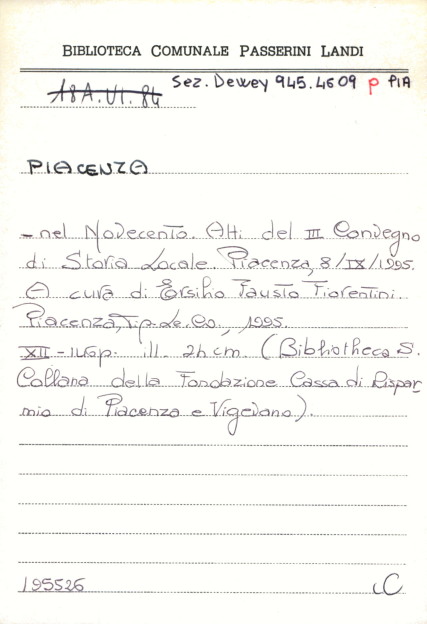 BIBLIOTECA COMUNALE PASSERINI LANDI
Sez. Dewey 945.4609 p PIA
18A.VI.84
PIACENZA
- nel Novecento. Atti del III Convegno
di Storia Locale. Piacenza, 8/IX/1995.
A cura di Ersilio Fausto Fiorentini.
Piacenza, Tip.Le.Co., 1995.
XII - 146p. ill. 24 cm. (Bibliotheca S.
Collana della Fondazione Cassa di Rispar-
mio di Piacenza e Vigevano).
195526